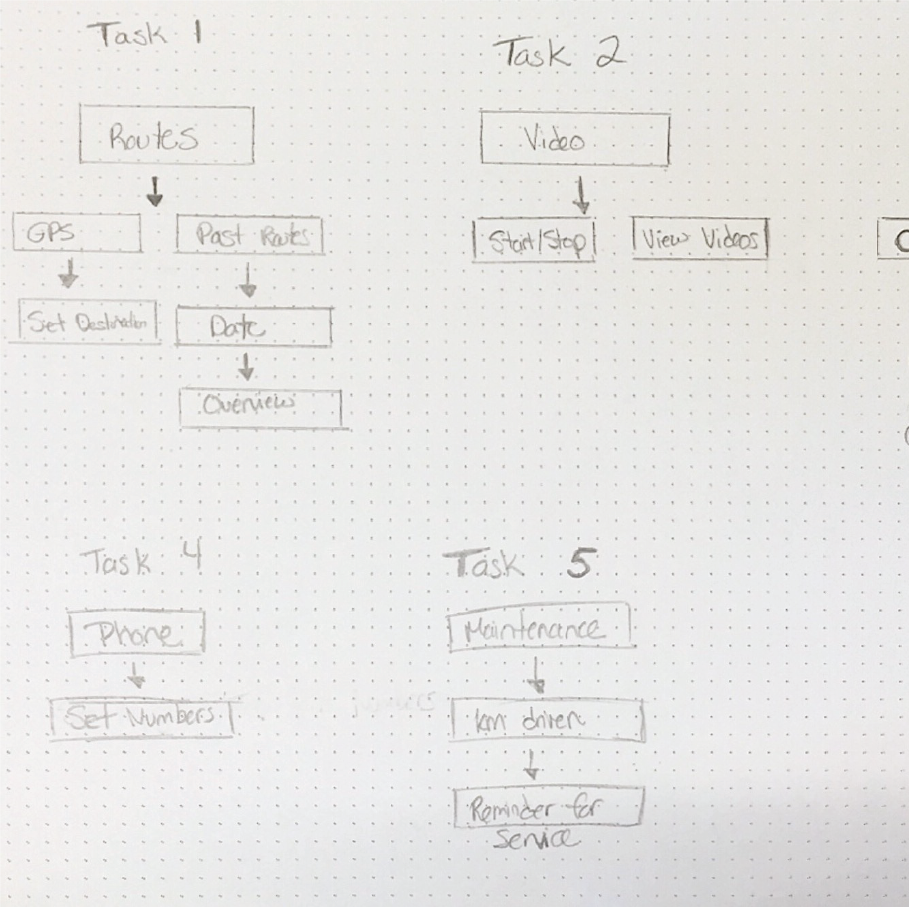 Task 1
Routes
GPS
Past Routes
Set Destination
Date
Overview
Task 2
Video
Start/Stop
View Videos
Task 4
Phone
Set Numbers
Task 5
Maintenance
km driven
Reminder for
Service